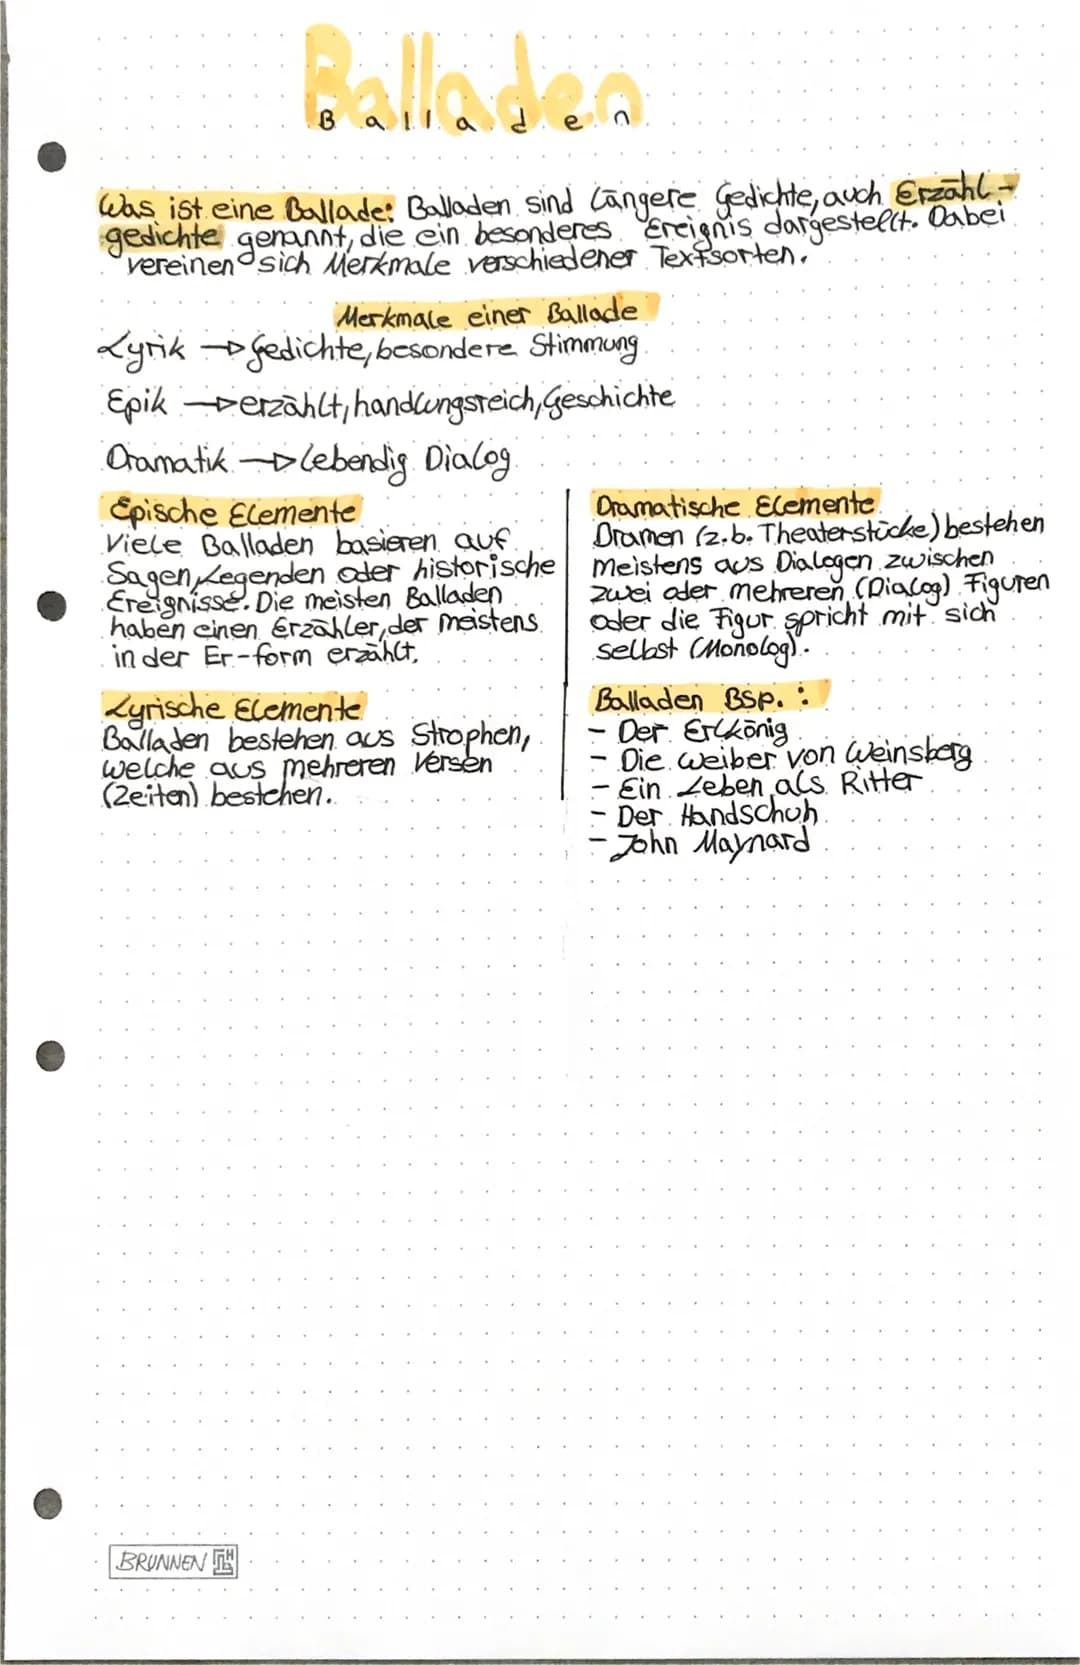 Balladen
Balladen
Was ist eine Ballade: Balladen sind längere Gedichte, auch Erzähl-
gedichte genannt, die ein besonderes Ereignis dargestellt. Dabei
vereinen sich Merkmale verschiedener Textsorten.
Merkmale einer Ballade
Lyrik → Gedichte, besondere Stimmung
Epik → erzählt, handlungsreich, Geschichte
Dramatik → Lebendig Dialog
Epische Elemente
Viele Balladen basieren auf
Sagen, Legenden oder historische
Ereignisse. Die meisten Balladen
haben einen Erzähler, der meistens
in der Er-form erzählt.
Lyrische Elemente
Balladen bestehen aus Strophen,
welche aus mehreren Versen
(Zeiten) bestehen.
Dramatische Elemente
Dramen (z.b. Theaterstücke) bestehen
meistens aus Dialogen zwischen
zwei oder mehreren (Dialog) Figuren
oder die Figur spricht mit sich
selbst (Monolog).
Balladen Bsp. :
- Der Erlkönig
- Die weiber von Weinsberg
- Ein Leben als Ritter
- Der Handschuh
- John Maynard
BRUNNEN